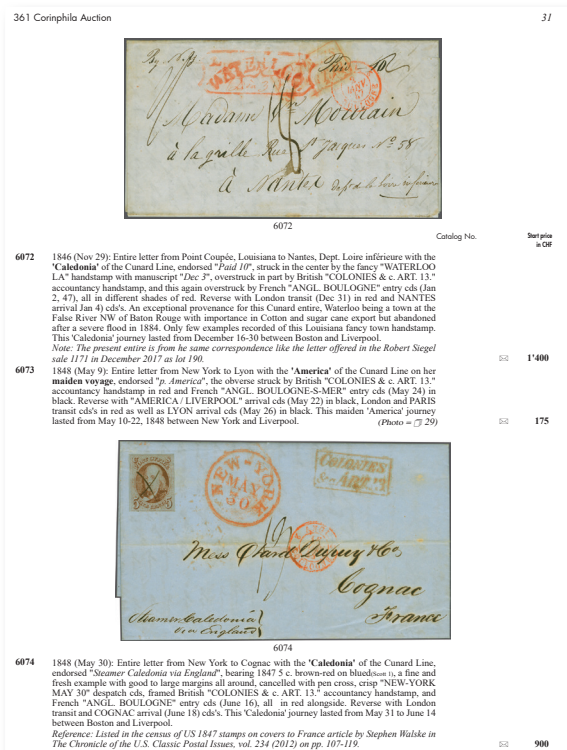 361 Corinphila Auction
31
WATERLOO
Paid 10
Madame
Mourain
à la grille Rue St Jacques No 58
à Nantes
6072
Catalog No.
Start price
in CHF
6072 1846 (Nov 29): Entire letter from Point Coupée, Louisiana to Nantes, Dept. Loire inférieure with the
'Caledonia' of the Cunard Line, endorsed "Paid 10", struck in the center by the fancy "WATERLOO
LA" handstamp with manuscript "Dec 3", overstruck in part by British "COLONIES & c. ART. 13."
accountancy handstamp, and this again overstruck by French "ANGL. BOULOGNE" entry cds (Jan
2, 47), all in different shades of red. Reverse with London transit (Dec 31) in red and NANTES
arrival Jan 4) cds's. An exceptional provenance for this Cunard entire, Waterloo being a town at the
False River NW of Baton Rouge with importance in Cotton and sugar cane export but abandoned
after a severe flood in 1884. Only few examples recorded of this Louisiana fancy town handstamp.
This 'Caledonia' journey lasted from December 16-30 between Boston and Liverpool.
Note: The present entire is from he same correspondence like the letter offered in the Robert Siegel
sale 1171 in December 2017 as lot 190. 1'400
6073 1848 (May 9): Entire letter from New York to Lyon with the 'America' of the Cunard Line on her
maiden voyage, endorsed "p. America", the obverse struck by British "COLONIES & c. ART. 13."
accountancy handstamp in red and French "ANGL. BOULOGNE-S-MER" entry cds (May 24) in
black. Reverse with "AMERICA / LIVERPOOL" arrival cds (May 22) in black, London and PARIS
transit cds's in red as well as LYON arrival cds (May 26) in black. This maiden 'America' journey
lasted from May 10-22, 1848 between New York and Liverpool. (Photo = 29) 175
NEW-YORK
MAY
30
COLONIES
&c. ART. 13
Mess Otard Dupuy & Co,
Cognac
France
Steamer Caledonia
via England
6074
6074 1848 (May 30): Entire letter from New York to Cognac with the 'Caledonia' of the Cunard Line,
endorsed "Steamer Caledonia via England", bearing 1847 5 c. brown-red on blued(Scott 1), a fine and
fresh example with good to large margins all around, cancelled with pen cross, crisp "NEW-YORK
MAY 30" despatch cds, framed British "COLONIES & c. ART. 13." accountancy handstamp, and
French "ANGL. BOULOGNE" entry cds (June 16), all in red alongside. Reverse with London
transit and COGNAC arrival (June 18) cds's. This 'Caledonia' journey lasted from May 31 to June 14
between Boston and Liverpool.
Reference: Listed in the census of US 1847 stamps on covers to France article by Stephen Walske in
The Chronicle of the U.S. Classic Postal Issues, vol. 234 (2012) on pp. 107-119. 900